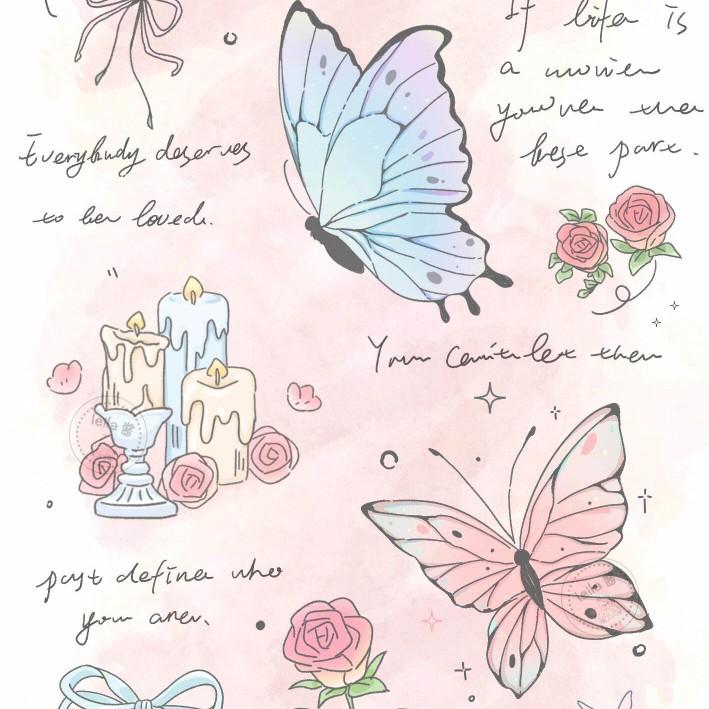 If life is
a movie
you're the
best part.
Everybody deserves
to be loved.
You can't let the
past define who
you are.
lella
lella